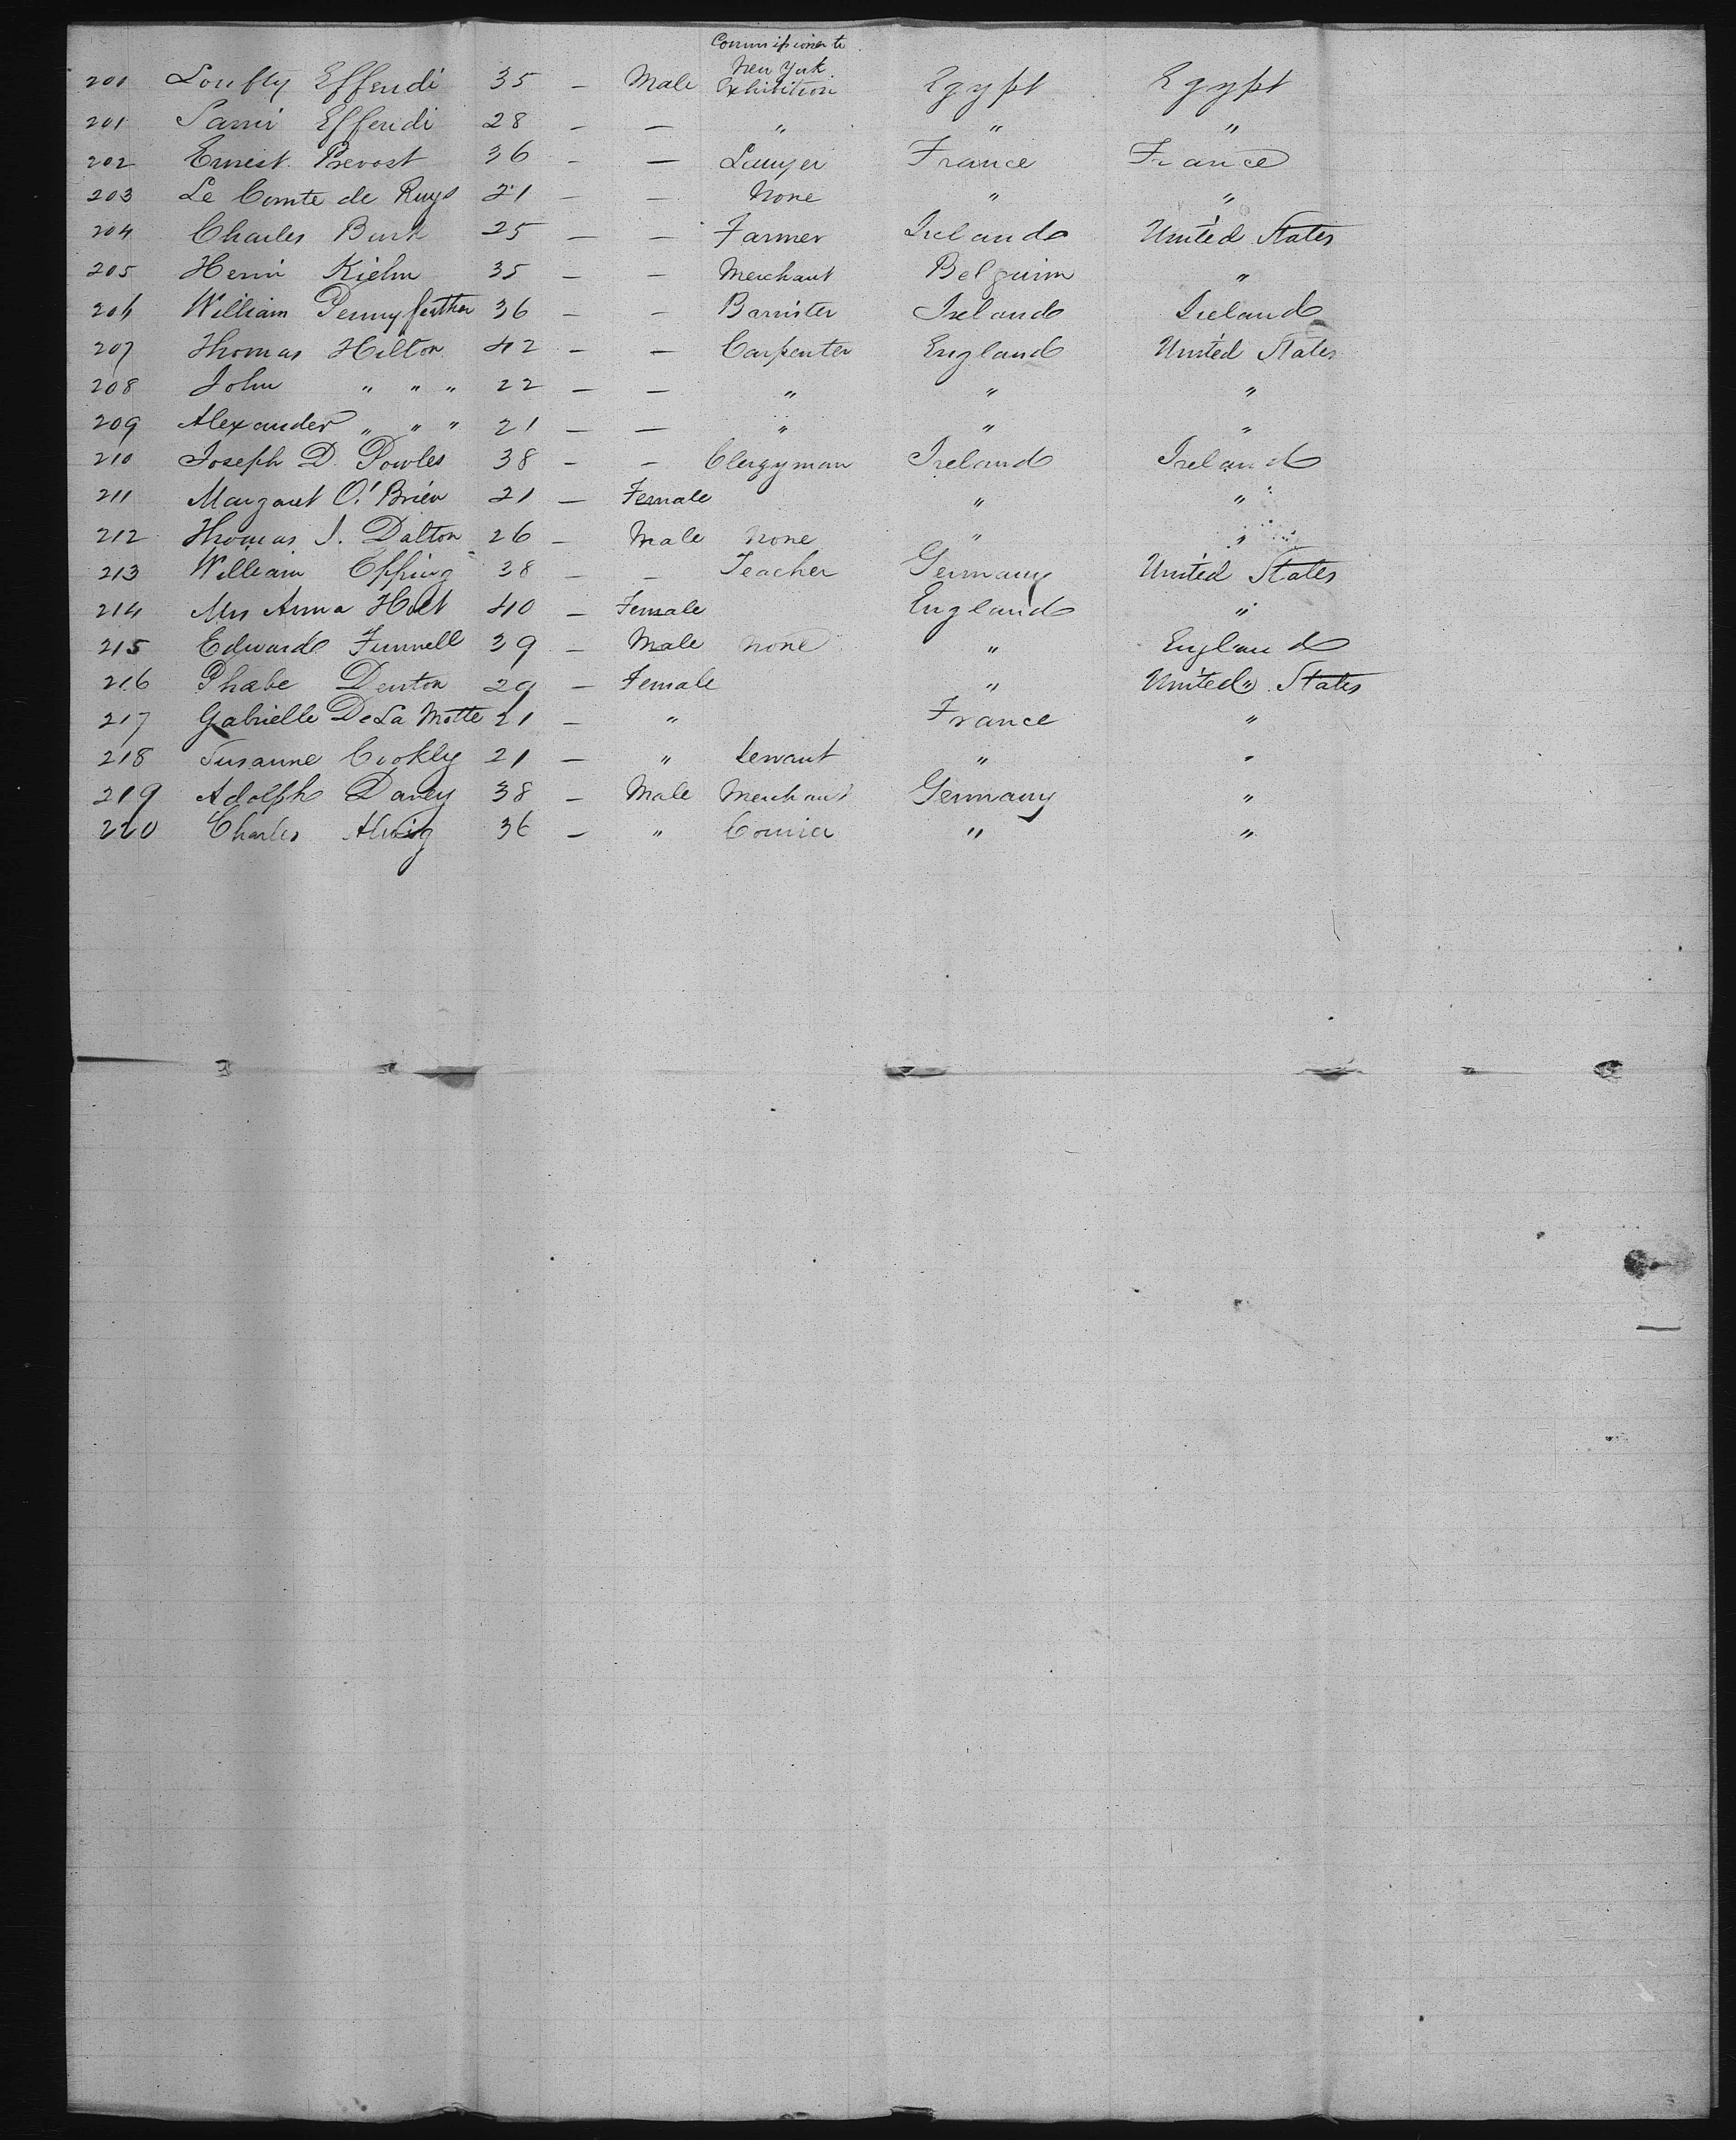 Commissioner to
New York
200 Loufty Effendi 35 — Male Exhibition Egypt Egypt
201 Sami Effendi 28 — — " " "
202 Ernest Prevost 36 — — Lawyer France France
203 Le Comte de Ruys 21 — — None " "
204 Charles Burk 25 — — Farmer Ireland United States
205 Henri Kiehn 35 — — Merchant Belguim "
206 William Pennyfeather 36 — — Barrister Ireland Ireland
207 Thomas Hilton 42 — — Carpenter England United States
208 John " " " 22 — — " " "
209 Alexander " " " 21 — — " " "
210 Joseph D. Powles 38 — — Clergyman Ireland Ireland
211 Margaret O'Brien 21 — Female " "
212 Thomas J. Dalton 26 — Male None " "
213 William Epping 38 — — Teacher Germany United States
214 Mrs Anna Holt 40 — Female England "
215 Edward Funnell 39 — Male None " England
216 Phabe Denton 29 — Female " United " States
217 Gabrielle De La Motte 21 — " France "
218 Susanne Cookly 21 — " Servant " "
219 Adolph Davey 38 — Male Merchant Germany "
220 Charles Alwig 36 — " Courier " "